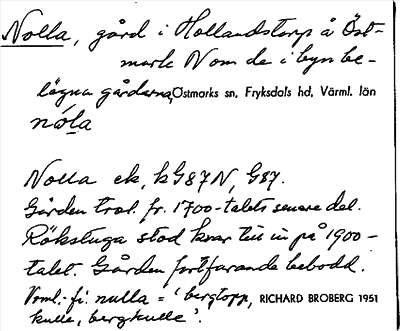 Nolla, gård i Hollandstorp å Öst-
mark N om de i byn be-
lägna gårdarna, Östmarks sn, Fryksdals hd, Värml. län
nóla
Nolla ek, kG87N, G87.
Gården trol. fr. 1700-talets senare del.
Rökstuga stod kvar till in på 1900-
talet. Gården fortfarande bebodd.
Vrml.-fi. nulla = 'bergtopp, RICHARD BROBERG 1951
kulle, bergkulle'.